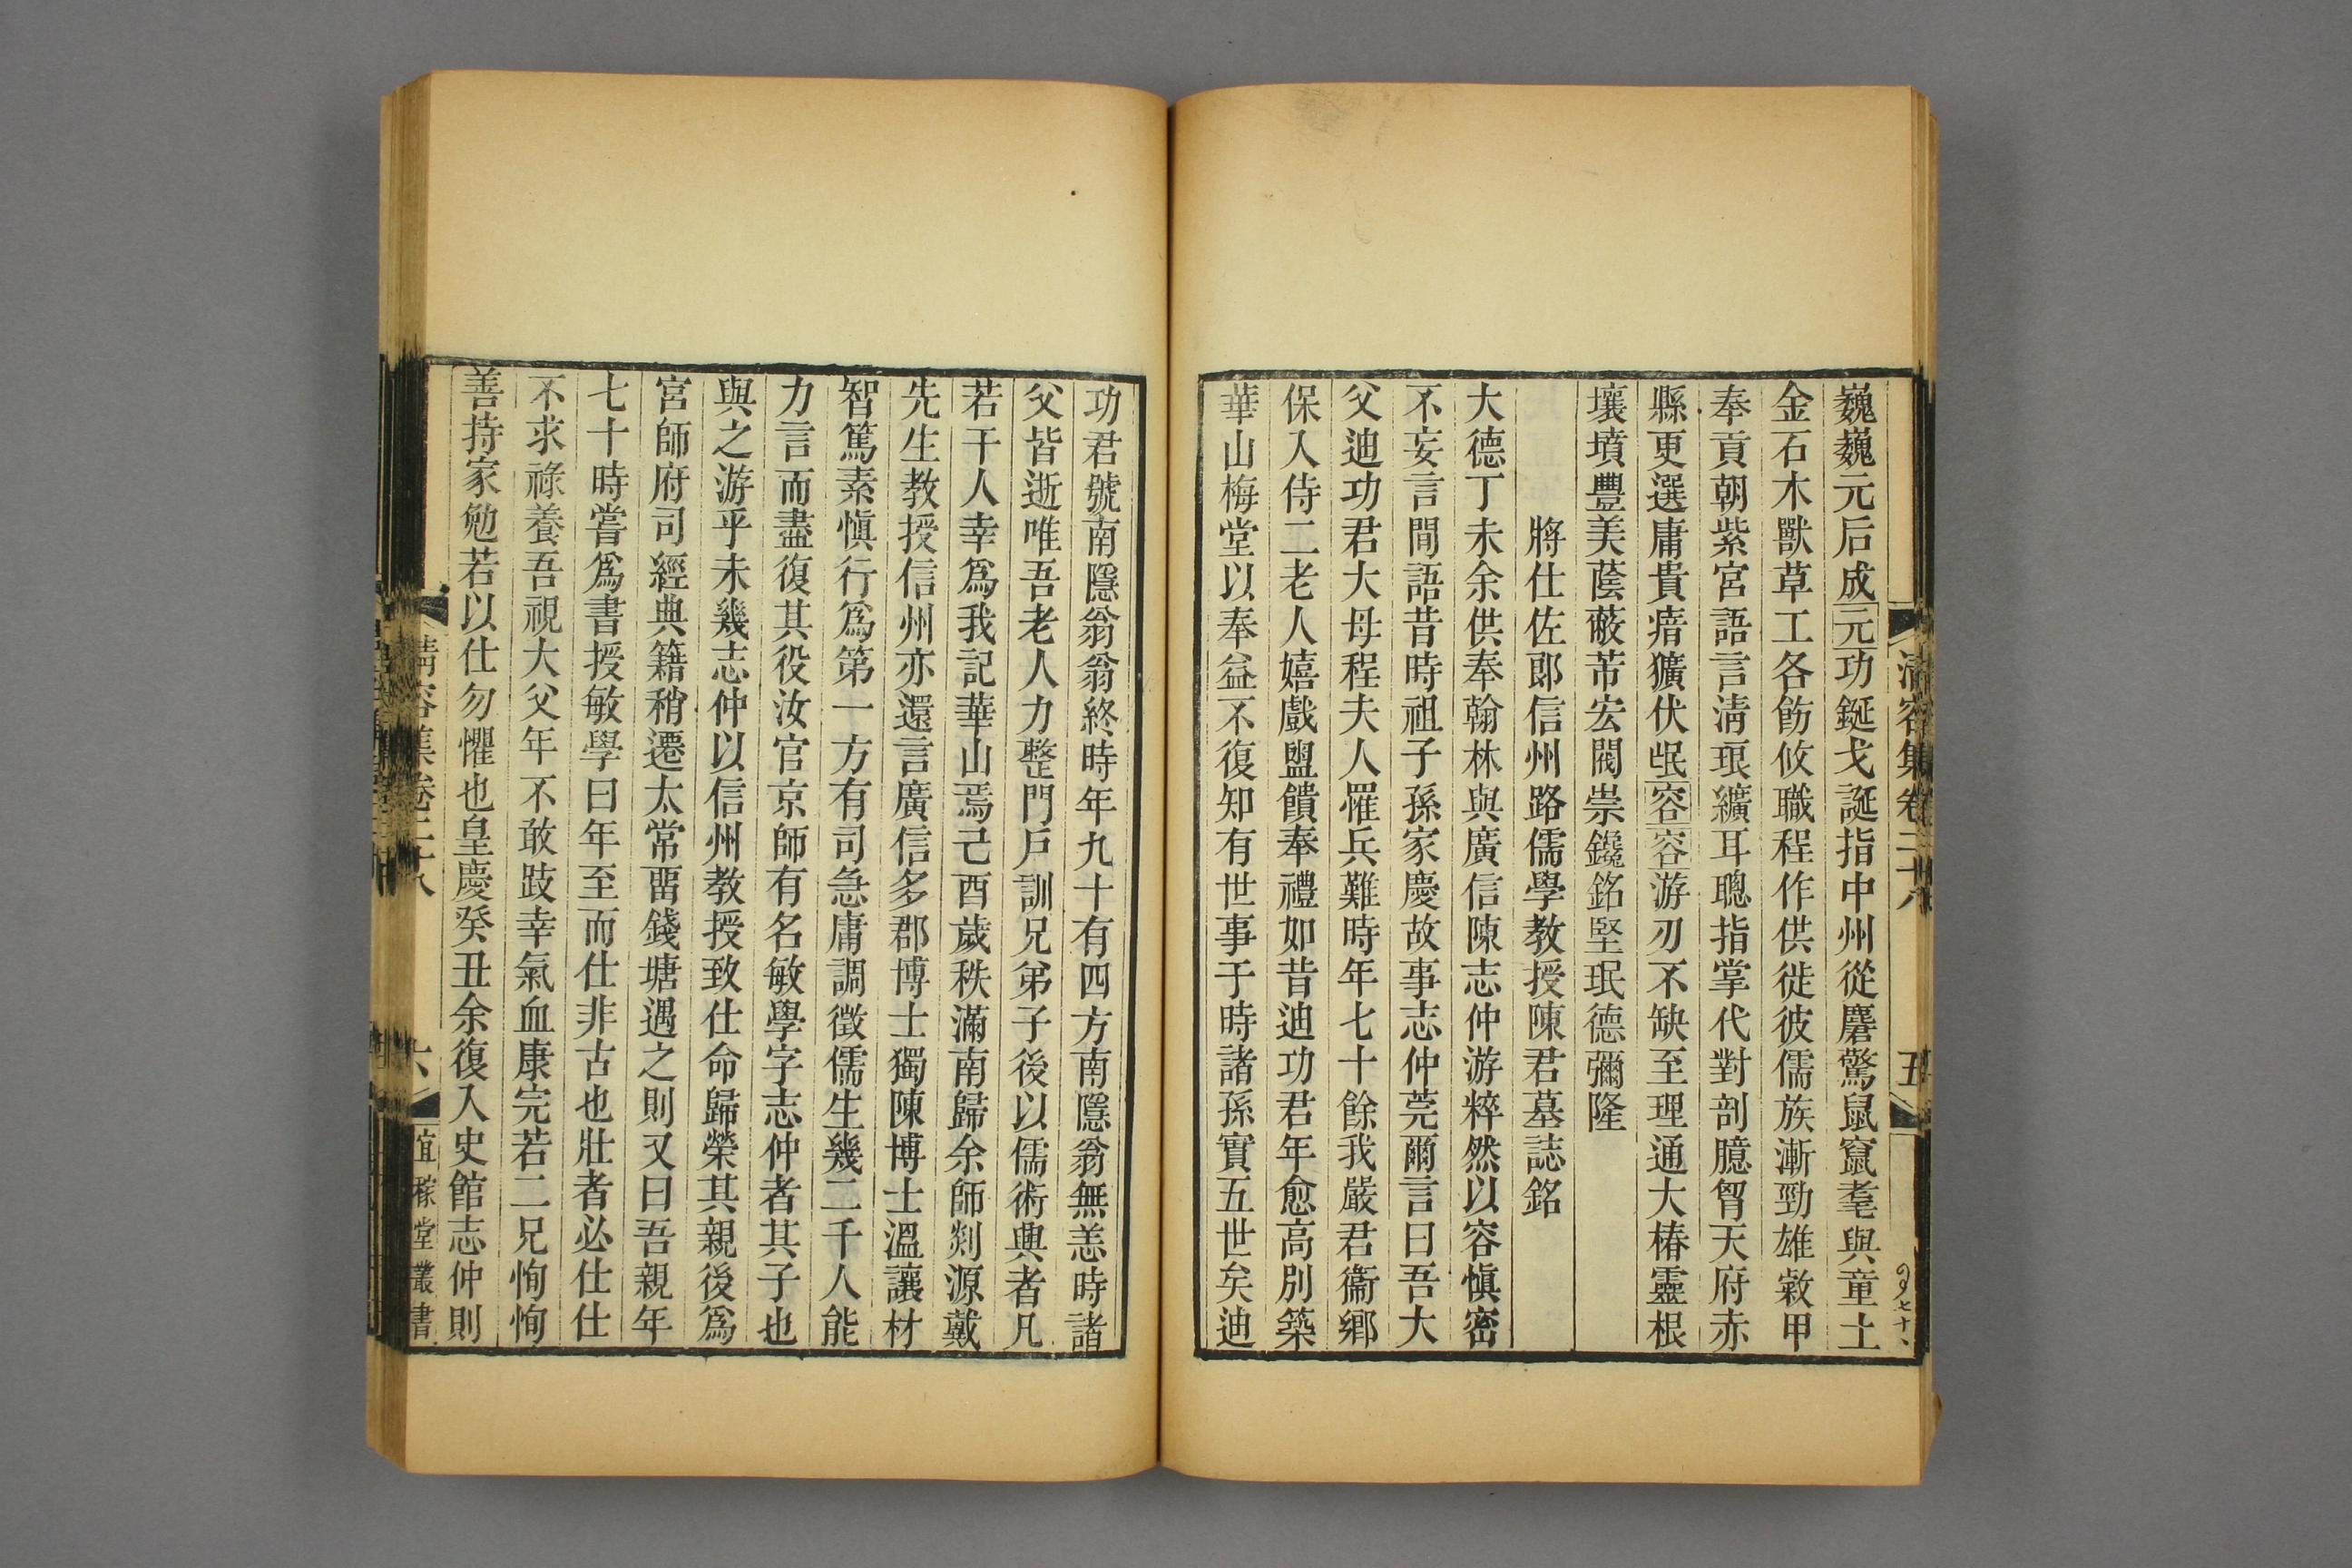 清容集卷二十八
五
巍巍元后成元功鋋戈誕指中州從麏驚鼠竄耄與童土
金石木獸草工各飭攸職程作供徙彼儒族漸勁雄敹甲
奉貢朝紫宮語言淸琅纊耳聰指掌代對剖臆胷天府赤
縣更選庸貴瘖獷伏民容容游刃不缺至理通大椿靈根
壤墳豐美蔭蔽芾宏閥崇鑱銘堅珉德彌隆
將仕佐郎信州路儒學教授陳君墓誌銘
大德丁未余供奉翰林與廣信陳志仲游粹然以容愼密
不妄言間語昔時祖子孫家慶故事志仲莞爾言曰吾大
父迪功君大母程夫人罹兵難時年七十餘我嚴君衞鄉
保入侍二老人嬉戲盥饋奉禮如昔迪功君年愈高別築
華山梅堂以奉益不復知有世事于時諸孫實五世矣迪
功君號南隱翁翁終時年九十有四方南隱翁無恙時諸
父皆逝唯吾老人力整門戶訓兄弟子後以儒術興者凡
若干人幸爲我記華山焉己酉歲秩滿南歸余師剡源戴
先生教授信州亦還言廣信多郡博士獨陳博士溫讓材
智篤素愼行爲第一方有司急庸調徵儒生幾二千人能
力言而盡復其役汝官京師有名敏學字志仲者其子也
與之游乎未幾志仲以信州教授致仕命歸榮其親後爲
宮師府司經典籍稍遷太常畱錢塘遇之則又曰吾親年
七十時嘗爲書授敏學曰年至而仕非古也壯者必仕仕
不求祿養吾視大父年不敢跂幸氣血康完若二兄恂恂
善持家勉若以仕勿懼也皇慶癸丑余復入史館志仲則
清容集卷二十八
六
宜稼堂叢書